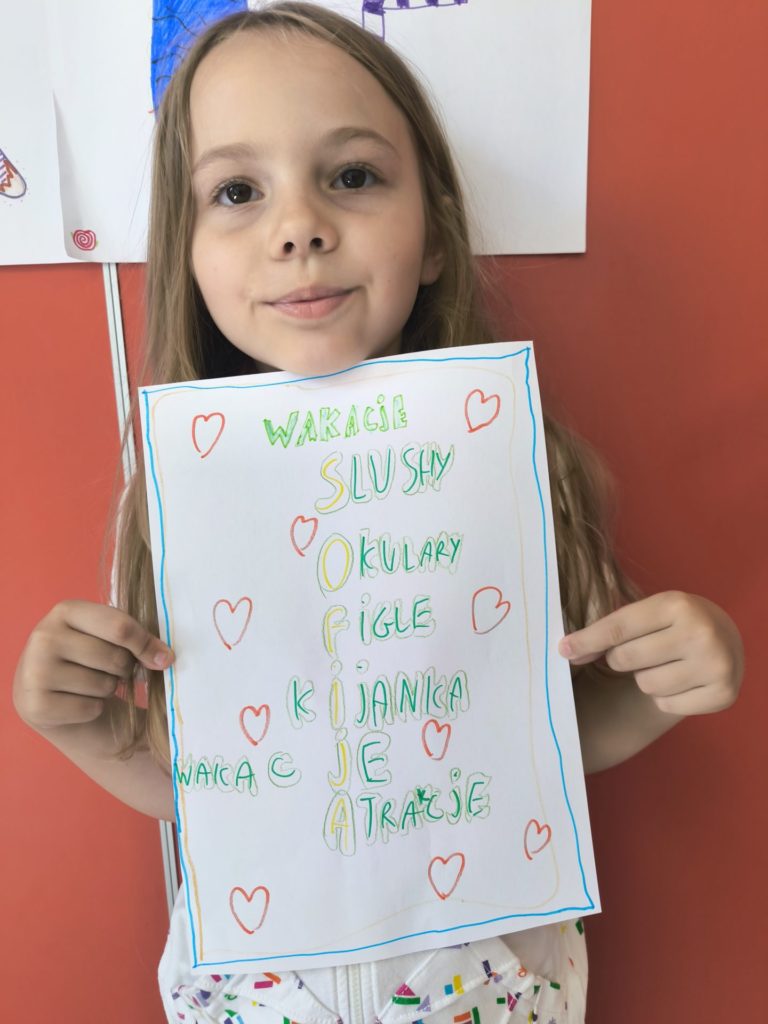 WAKACJE
SLUSHY
OKULARY
FIGLE
KIJANKA
WAKACJE
ATRAKCJE